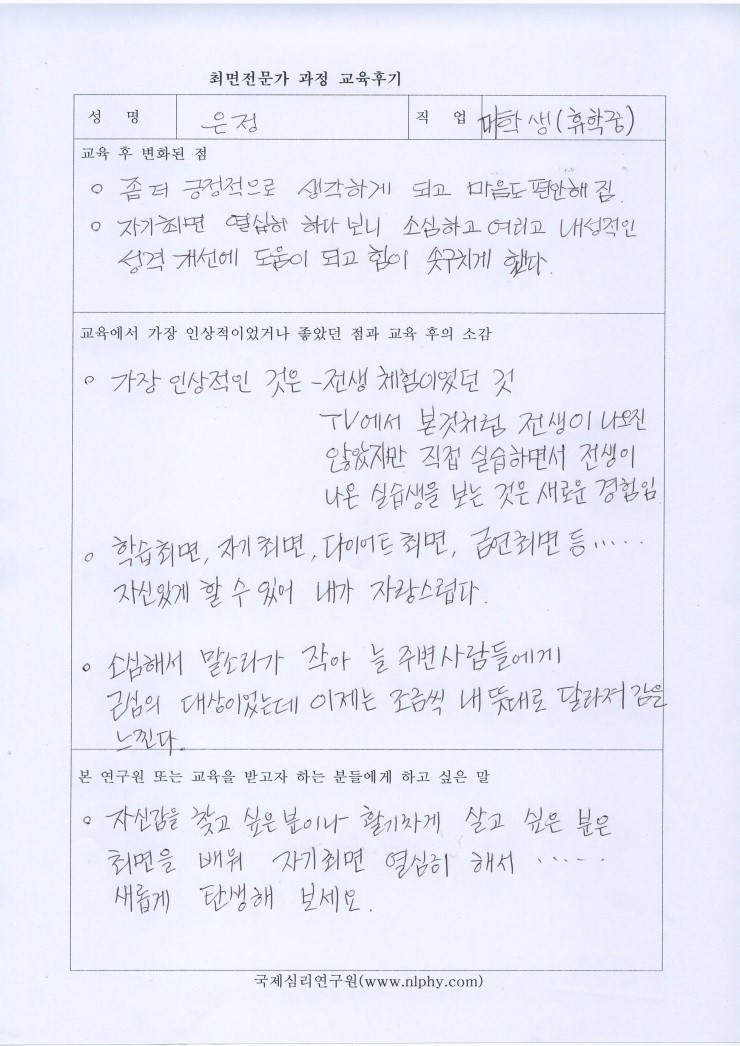 최면전문가 과정 교육후기
성 명 은정 직 업 대학생(휴학중)
교육 후 변화된 점
○ 좀 더 긍정적으로 생각하게 되고 마음도 편안해 짐.
○ 자기최면 열심히 하다 보니 소심하고 여리고 내성적인
성격 개선에 도움이 되고 힘이 솟구치게 했다.
교육에서 가장 인상적이었거나 좋았던 점과 교육 후의 소감
○ 가장 인상적인 것은 - 전생 체험이었던 것
TV에서 본것처럼 전생이 나오진
않았지만 직접 실습하면서 전생이
나온 실습생을 보는 것은 새로운 경험임.
○ 학습최면, 자기최면, 다이어트최면, 금연최면 등......
자신있게 할 수 있어 내가 자랑스럽다.
○ 소심해서 말소리가 작아 늘 주변사람들에게
근심의 대상이었는데 이제는 조금씩 내 뜻대로 달라져 감을
느낀다.
본 연구원 또는 교육을 받고자 하는 분들에게 하고 싶은 말
○ 자신감을 찾고 싶은분이나 활기차게 살고 싶은 분은
최면을 배워 자기최면 열심히 해서 ......
새롭게 탄생해 보세요.
국제심리연구원(www.nlphy.com)